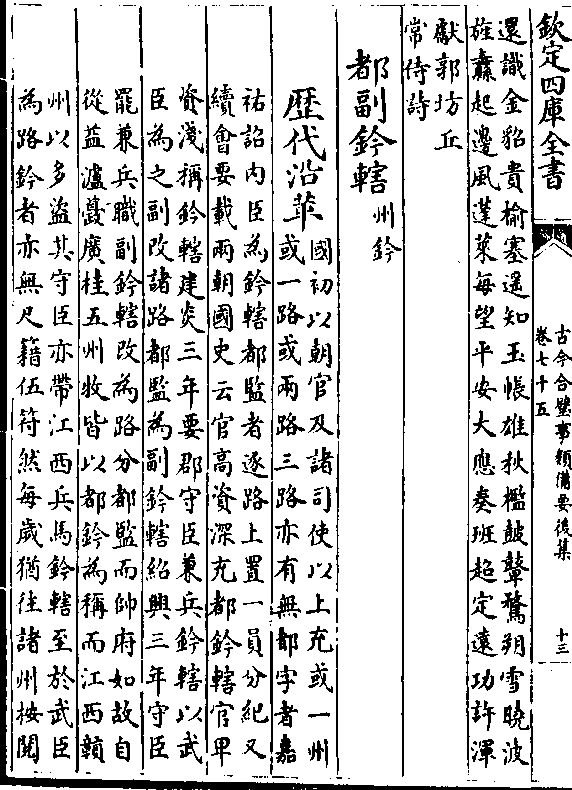 欽定四庫全書
古今合璧事類備要後集
卷七十五
十三
還識金貂貴榆塞遥知玉帳雄秋檻皷鼙驚朔雪曉波
旌纛起邊風蓬萊每望平安大應奏班超定遠功許渾
獻郭坊丘
常侍詩
都副鈐轄州鈐
歴代沿革國初以朝官及諸司使以上充或一州
或一路或兩路三路亦有無都字者嘉
祐詔内臣為鈐轄都監者逐路上置一員分紀又
續會要載兩朝國史云官髙資深充都鈐轄官卑
資淺稱鈐轄建炎三年要郡守臣兼兵鈐轄以武
臣為之副改諸路都監為副鈐轄紹興三年守臣
罷兼兵職副鈐轄改為路分都監而帥府如故自
從益瀘䕫廣桂五州牧皆以都鈐為稱而江西贛
州以多盗其守臣亦帶江西兵馬鈐轄至於武臣
為路鈐者亦無尺籍伍符然每歲猶往諸州按閱